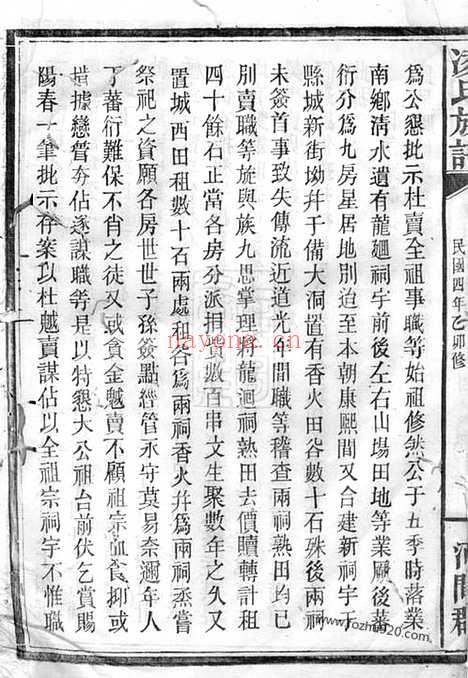 為公懇批示杜賣全祖事職等始祖修然公于五季時落業
南鄉清水遺有龍廻祠宇前後左右山塲田地等業厥後蕃
衍分為九房星居地方至本朝康熙間又合建新祠宇于
縣城新街坳并千備大洞置有香火田谷數十石殊後兩祠
未簽首事致失傳流近道光年間職等稽查兩祠熟田均已
別賣職等旋與族九思掌理將龍迴祠熟田去價贖轉計租
四十餘石正當各房分派捐貲數百串文生聚數年之久又
置城西田租數十石兩處租谷為兩祠香火并為兩祠烝嘗
祭祀之資願各房世世子孫簽點經管永守莫易奈邇年人
丁蕃衍難保不肖之徒又或貪金魆賣不顧祖宗血食抑或
搢據戀管夯佔逐謀職等是以特懇大公祖台前伏乞賞賜
陽春一筆批示存案以杜魆賣謀佔以全祖宗祠宇不惟職
民國四年乙卯修
河間郡
nayong.cn
www.fozhu920.com